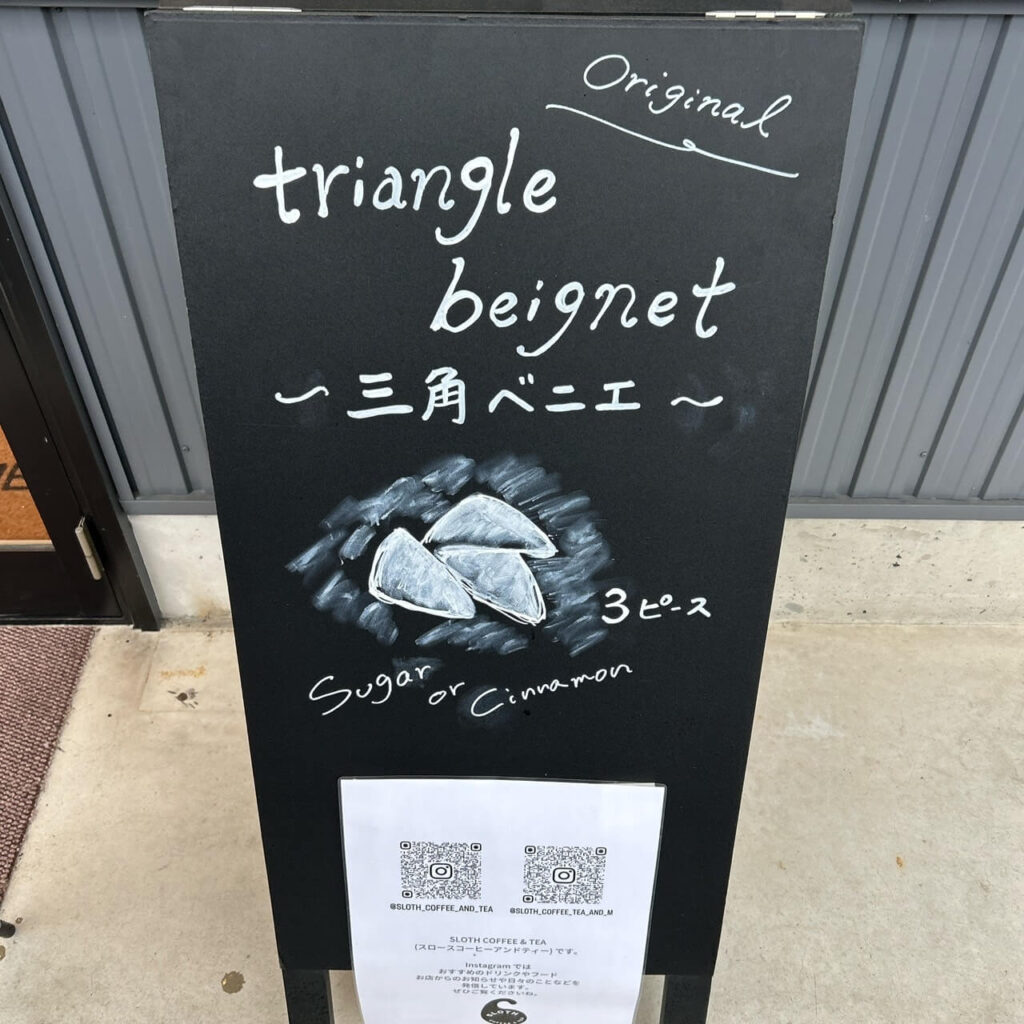 Original
triangle
beignet
～三角ベニエ～
3ピース
Sugar or Cinnamon
@SLOTH_COFFEE_AND_TEA
@SLOTH_COFFEE_TEA_AND_M
SLOTH COFFEE & TEA
(スロースコーヒーアンドティー) です。
Instagram では
おすすめのドリンクやフード
お店からのお知らせや日々のことなどを
発信しています。
ぜひご覧くださいね。
SLOTH